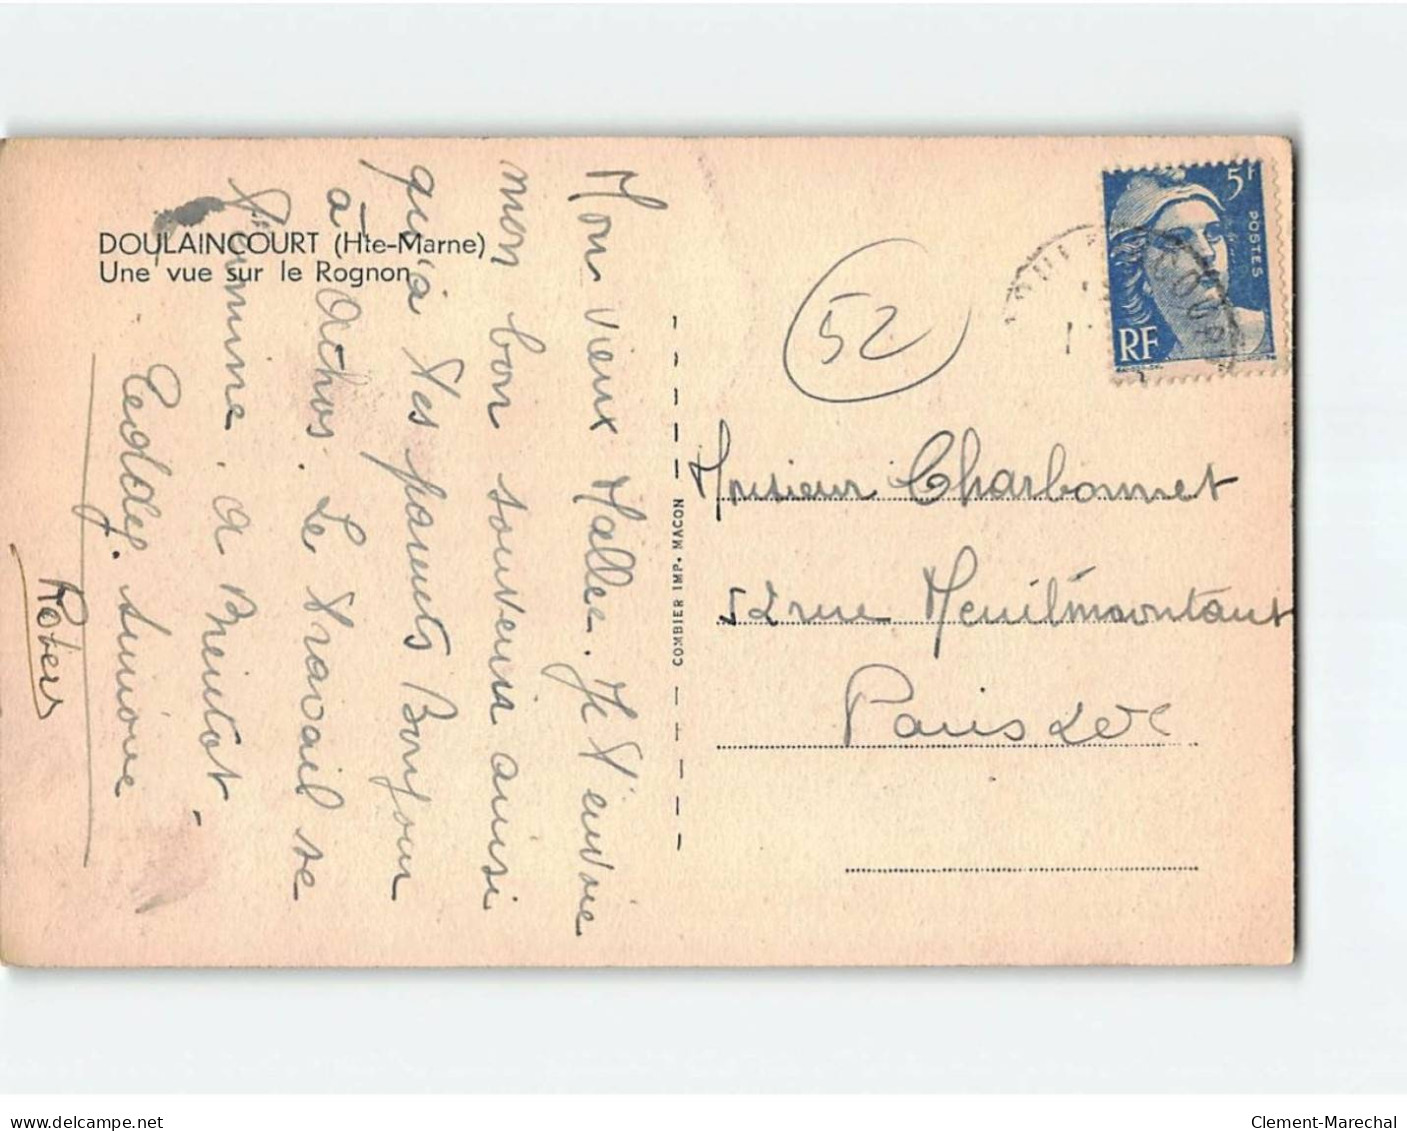 DOULAINCOURT (Hte-Marne)
Une vue sur le Rognon
Mon vieux Malles. Je t'envoie
mon bon souvenir ainsi
qu'à tes parents Bonjour
à Athos. Le travail se
termine. a Bientot.
Teddy. Simone
COMBIER IMP. MACON
52
5F
POSTES
RF
Monsieur Charbonnet
52 rue Menilmontant
Paris
delcampe.net
Clement-Marechal